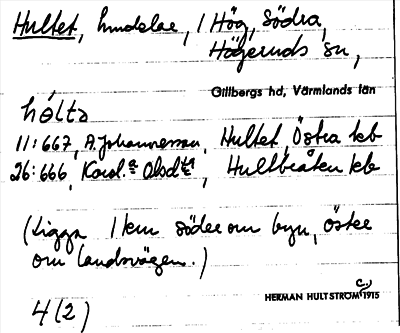 Hultet, hmdelar, i Hög, Södra,
Högeruds sn,
Gillbergs hd, Värmlands län
hólta
11:667, A. Johannesson, Hultet, Östra kb
26:666, Karol.a Olsdtr, Hultbråten kb
(Ligga 1 km söder om byn, öster
om landsvägen.)
HERMAN HULTSTRÖM c. 1915
4(2)